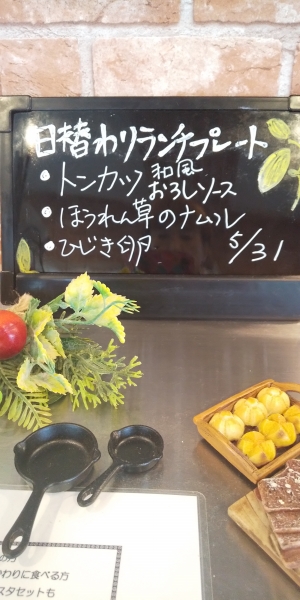 日替わりランチプレート
・トンカツ 和風
おろしソース
・ほうれん草のナムル
・ひじき卵
5/31
の方
かわりに食べる方
スタセットも